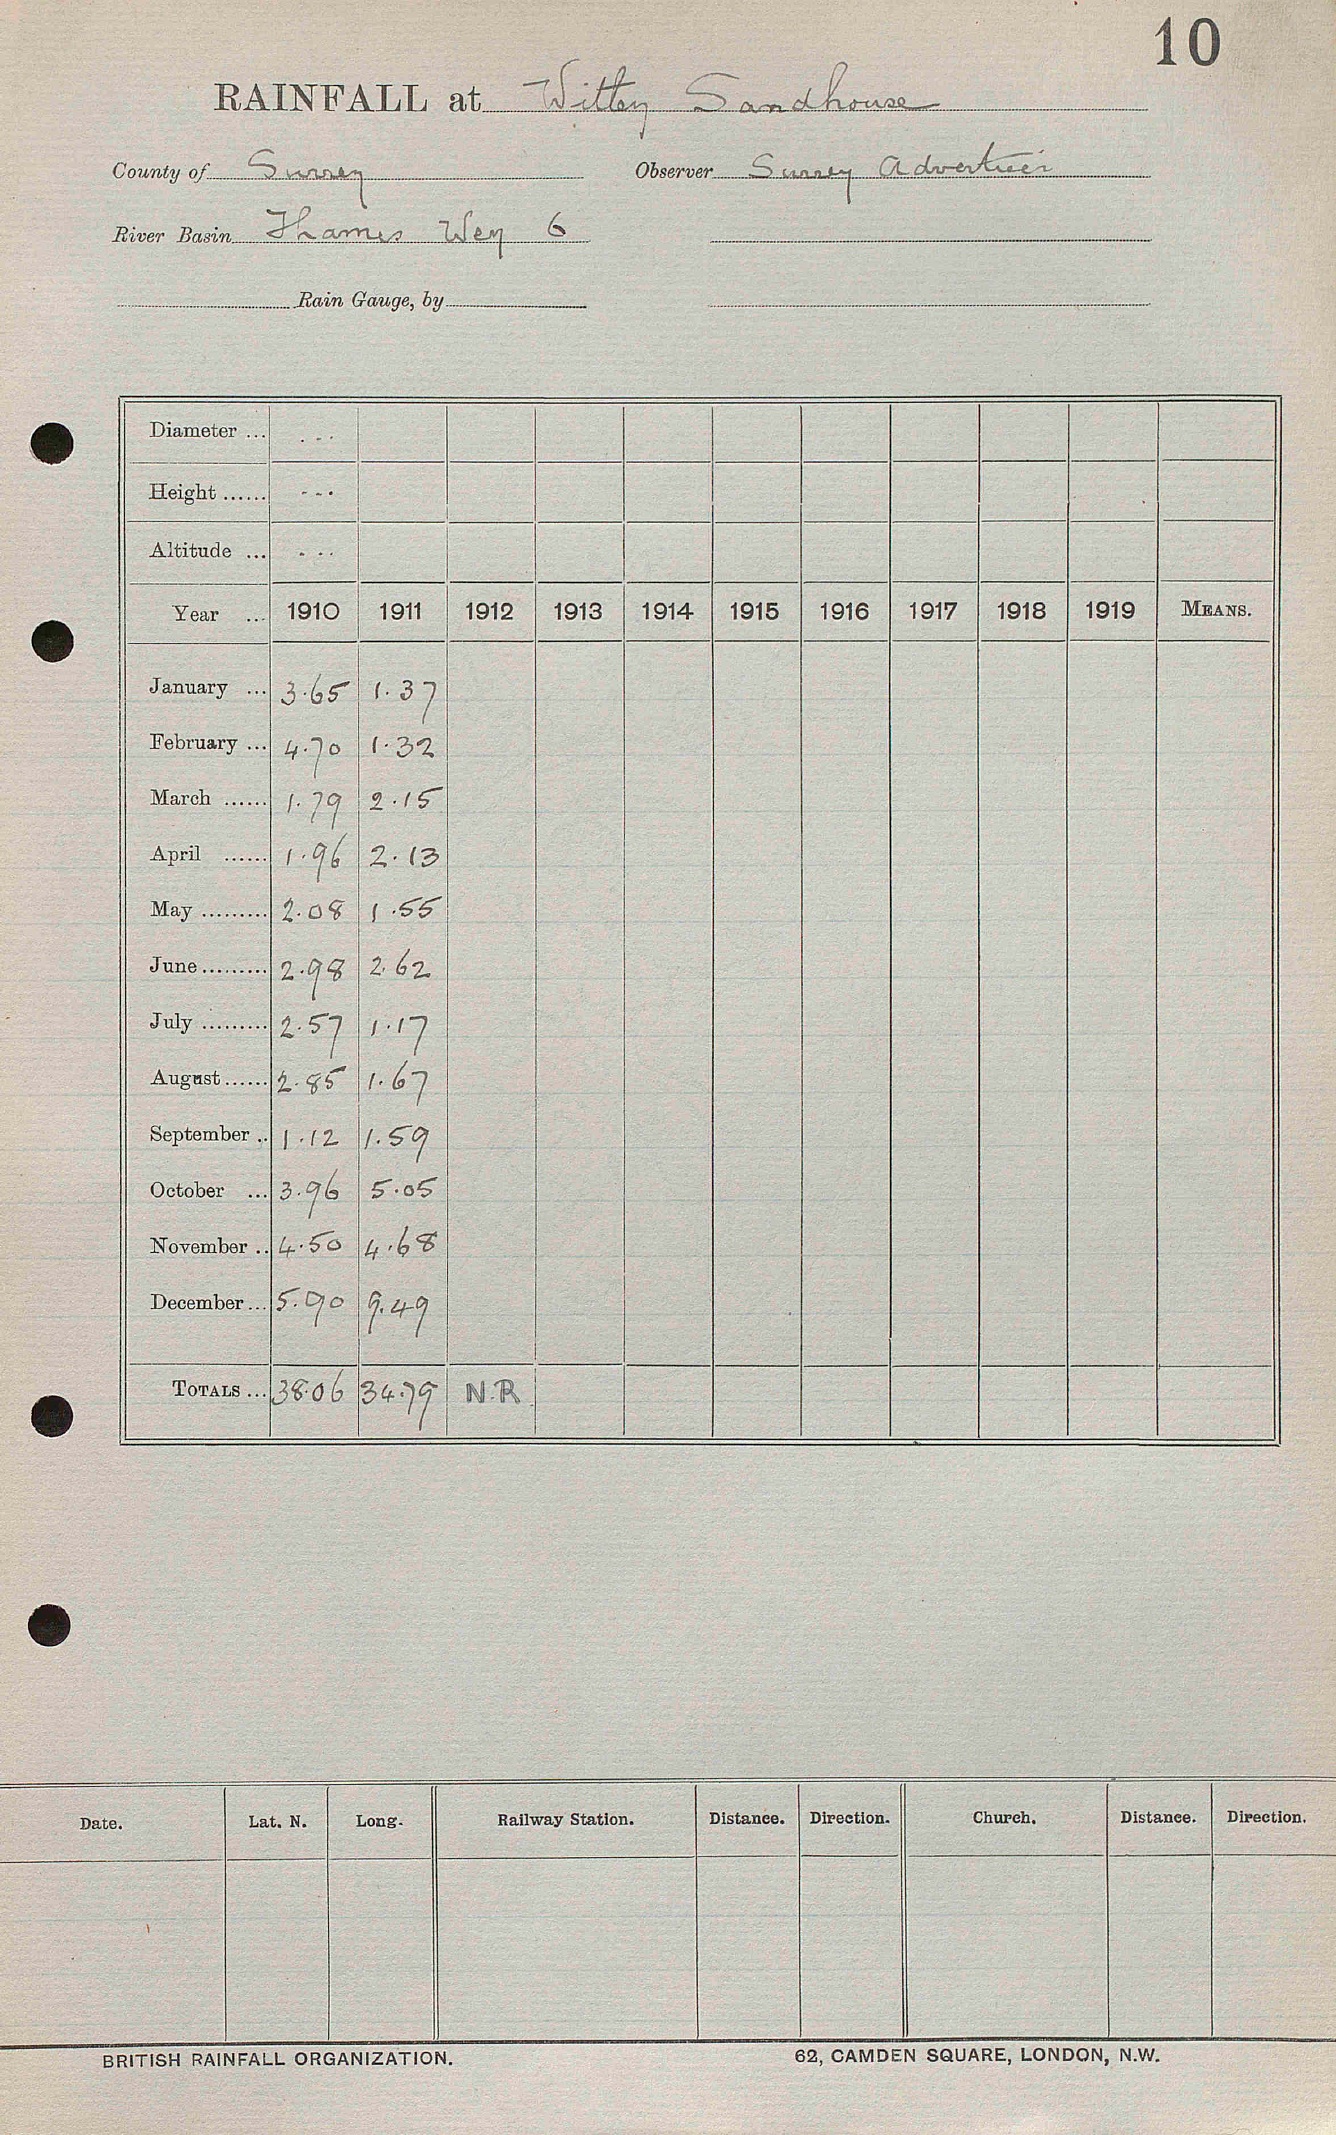 10
RAINFALL at Witley Sandhouse
County of Surrey Observer Surrey Advertiser
River Basin Thames Wey 6
Rain Gauge, by
Diameter ... ...
Height ...... ...
Altitude ... ...
Year ... 1910 1911 1912 1913 1914 1915 1916 1917 1918 1919 MEANS.
January ... 3.65 1.37
February ... 4.70 1.32
March ...... 1.79 2.15
April ...... 1.96 2.13
May ......... 2.08 1.55
June ......... 2.98 2.62
July ......... 2.57 1.17
August ...... 2.85 1.67
September .. 1.12 1.59
October ... 3.96 5.05
November .. 4.50 4.68
December ... 5.90 9.49
TOTALS ... 38.06 34.79 N.R.
Date. Lat. N. Long. Railway Station. Distance. Direction. Church. Distance. Direction.
BRITISH RAINFALL ORGANIZATION. 62, CAMDEN SQUARE, LONDON, N.W.